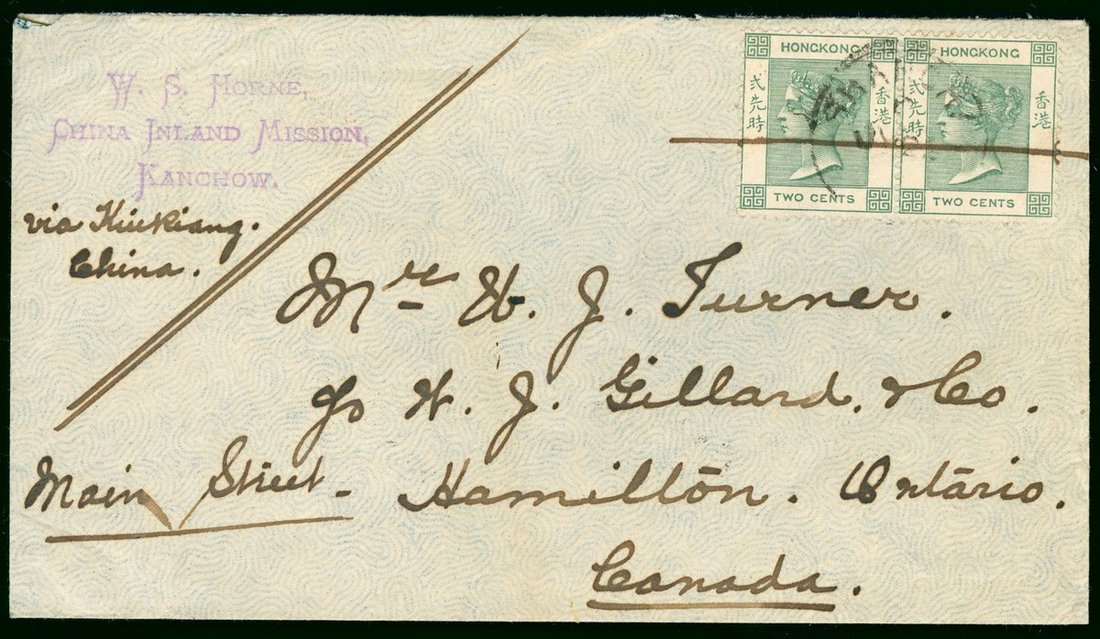 W. S. HORNE,
CHINA INLAND MISSION,
KANCHOW.
via Kiukiang.
China.
HONGKONG
貳先時
香港
TWO CENTS
HONGKONG
貳先時
香港
TWO CENTS
Mr H. J. Turner.
c/o H. J. Gillard. & Co.
Main Street - Hamilton. Ontario.
Canada.